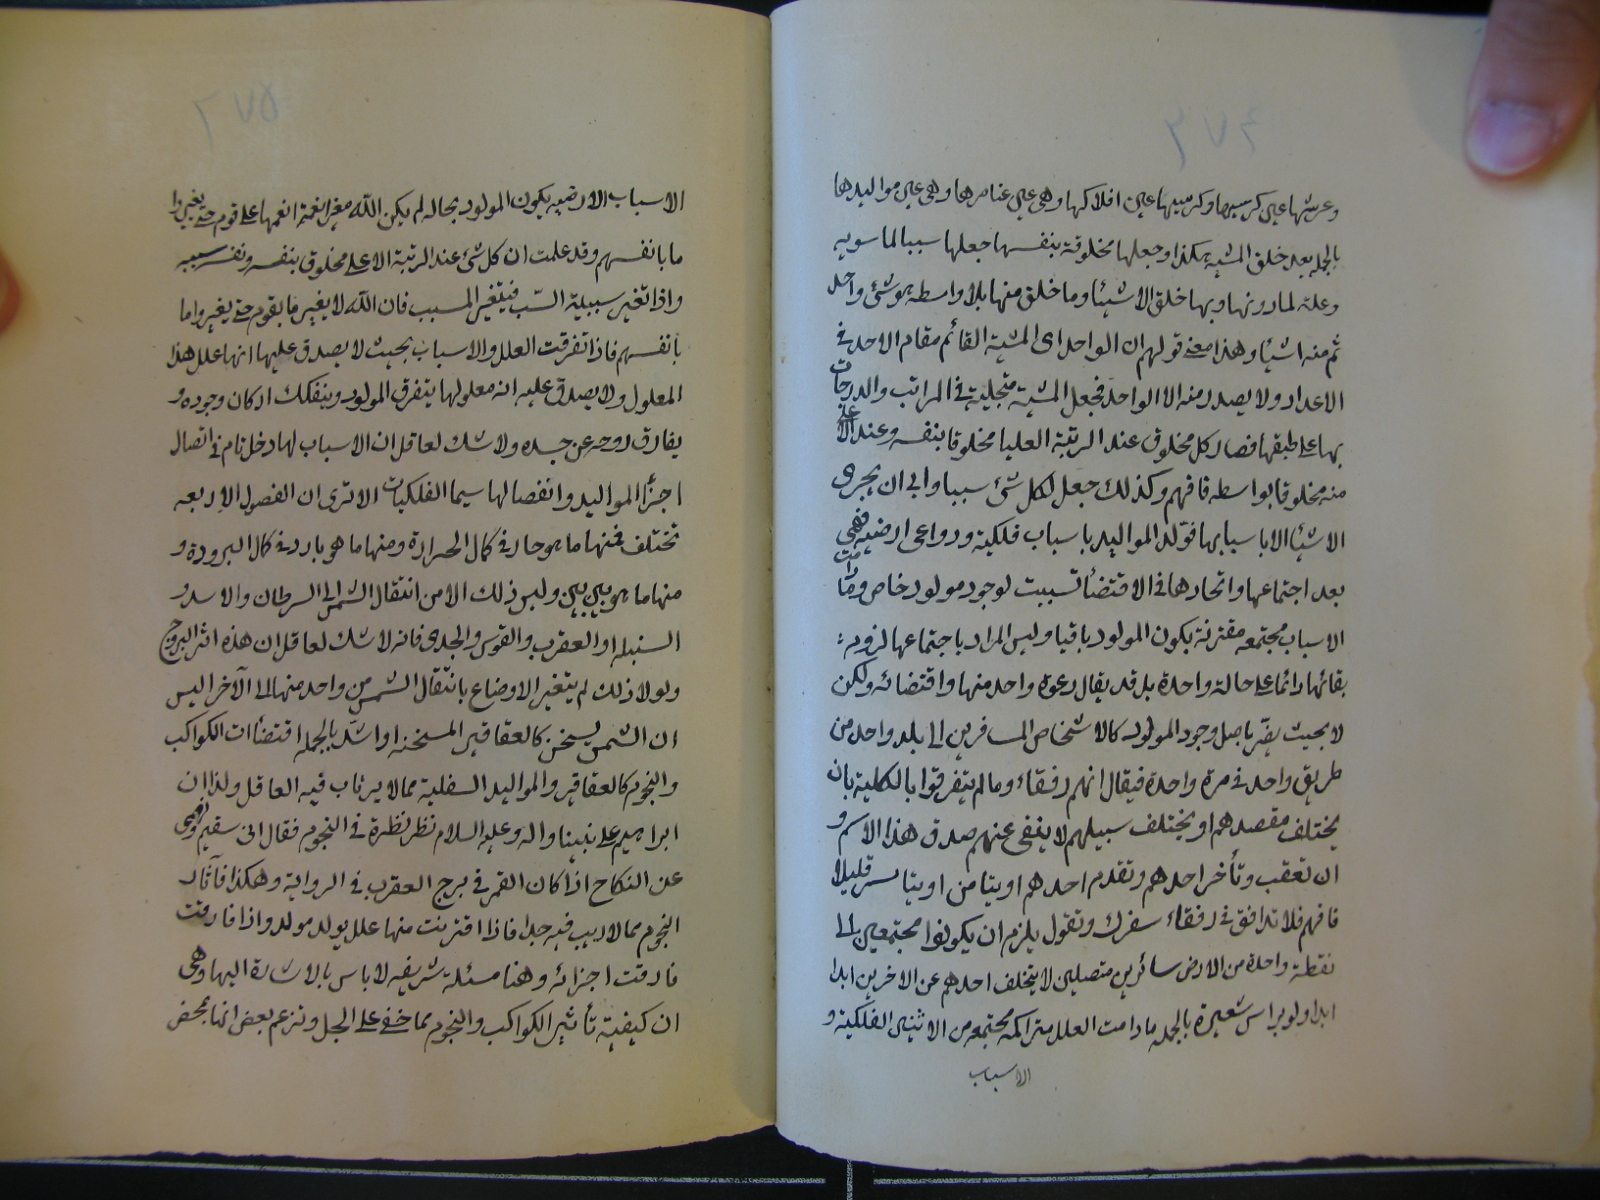 ٢٧٤
وعرشها عين كرسيها وكرسيها عين افلاكها وهى عين عناصرها وهى عين مواليدها
بالجمله بعد خلق المشية هكذا وجعلها مخلوقة بنفسها جعلها سببا لما سويه
وعلة لما دونها وبها خلق الاشيئا وما خلق منها بلا واسطه هو شئ واحد
ثم منه اشيئا وهذا معنى قولهم ان الواحد اى المشية القائم مقام الاحد فى
الاعداد ولا يصدر منه الا الواحد فجعل المشية متجلية فى المراتب والدرجات
بها على طبقها فصار كل مخلوق عند الرتبة العليا مخلوقا بنفسه وعند الاعلى
منه مخلوقا بواسطه فافهم وكذلك جعل لكل شئ سببا وابى ان يجرى
الاشيئا الا باسبابها فتولد المواليد باسباب فلكية ودواعى ارضيه فهى
بعد اجتماعها واتحادها فى الاقتضأ تسببت لوجود مولود خاص وما دامت
الاسباب مجتمعه مقترنة يكون المولود باقيا وليس المراد باجتماعها لزوم
بقائها دائما على حالة واحدة بل قد يقال دعوة واحد منها واقتضائه ولكن
لا بحيث يضر باصل وجود المولود كالاشخاص المسافرين الى بلد واحد من
طريق واحد فى مرة واحدة فيقال انهم رفقاء وما لم يتفرقوا بالكلية بان
يختلف مقصدهم او يختلف سبيلهم لا ينفى عنهم صدق هذا الاسم و
ان تعقب وتأخر احدهم وتقدم احدهم او يتامن او يتاسر قليلا
فافهم فلا تدافق فى رفقاء سفرك وتقول يلزم ان يكونوا مجتمعين الى
نقطة واحدة من الارض سائرين متصلين لا يتخلف احدهم عن الاخرين ابدا
ابدا ولو براس شعيرة بالجمله ما دامت العلل متراكمة مجتمعه من الاثنين الفلكية و
الاسباب
٢٧٥
الاسباب الارضيه يكون المولود بحاله لم يكن الله مغيرا نعمة انعمها على قوم حتى يغيروا
ما بانفسهم وقد علمت ان كل شئ عند الرتبة الاعلى مخلوق بنفسه ونفسه سببه
واذا تغير سببية السبب فيتغير المسبب فان الله لا يغير ما بقوم حتى يغيروا ما
بانفسهم فاذا تفرقت العلل والاسباب بحيث لا يصدق عليها انها علل هذا
المعلول ولا يصدق عليه انه معلولها يتفرق المولود وينفكك اركان وجوده و
يفارق روحه عن جسده ولا شك لعاقل ان الاسباب لها دخل تام فى اتصال
اجزأ المواليد وانفصالها سيما الفلكيات الا ترى ان الفصول الاربعه
تختلف فمنها ما هو حار فى كمال الحرارة ومنها ما هو بارد فى كمال البرودة و
منها ما هو بين بين وليس ذلك الا من انتقال الشمس الى السرطان والاسد و
السنبله او العقرب والقوس والجدى فانه لا شك لعاقل ان هذه اثر البروج
ولولا ذلك لم يتغير الاوضاع بانتقال الشمس من واحد منها الى الآخر اليس
ان الشمس يسخن كالعقاقير المسخنه او اشد بالجمله اقتضأات الكواكب
والنجوم كالعقاقير والمواليد السفلية مما لا يرتاب فيه العاقل ولذا ان
ابراهيم على نبينا واله وعليه السلام نظر نظرة فى النجوم فقال انى سقيم ونهى
عن النكاح اذا كان القمر فى برج العقرب فى الرواية وهكذا فآثار
النجوم مما لا ريب فيه جدا فاذا اقترنت منها علل يولد مولد واذا فارقت
فارقت اجزائه وهنا مسئلة شريفه لا باس بالاشارة اليها وهى
ان كيفية تأثير الكواكب والنجوم مما خفى على الجل وتزعم بعض انها بمحض